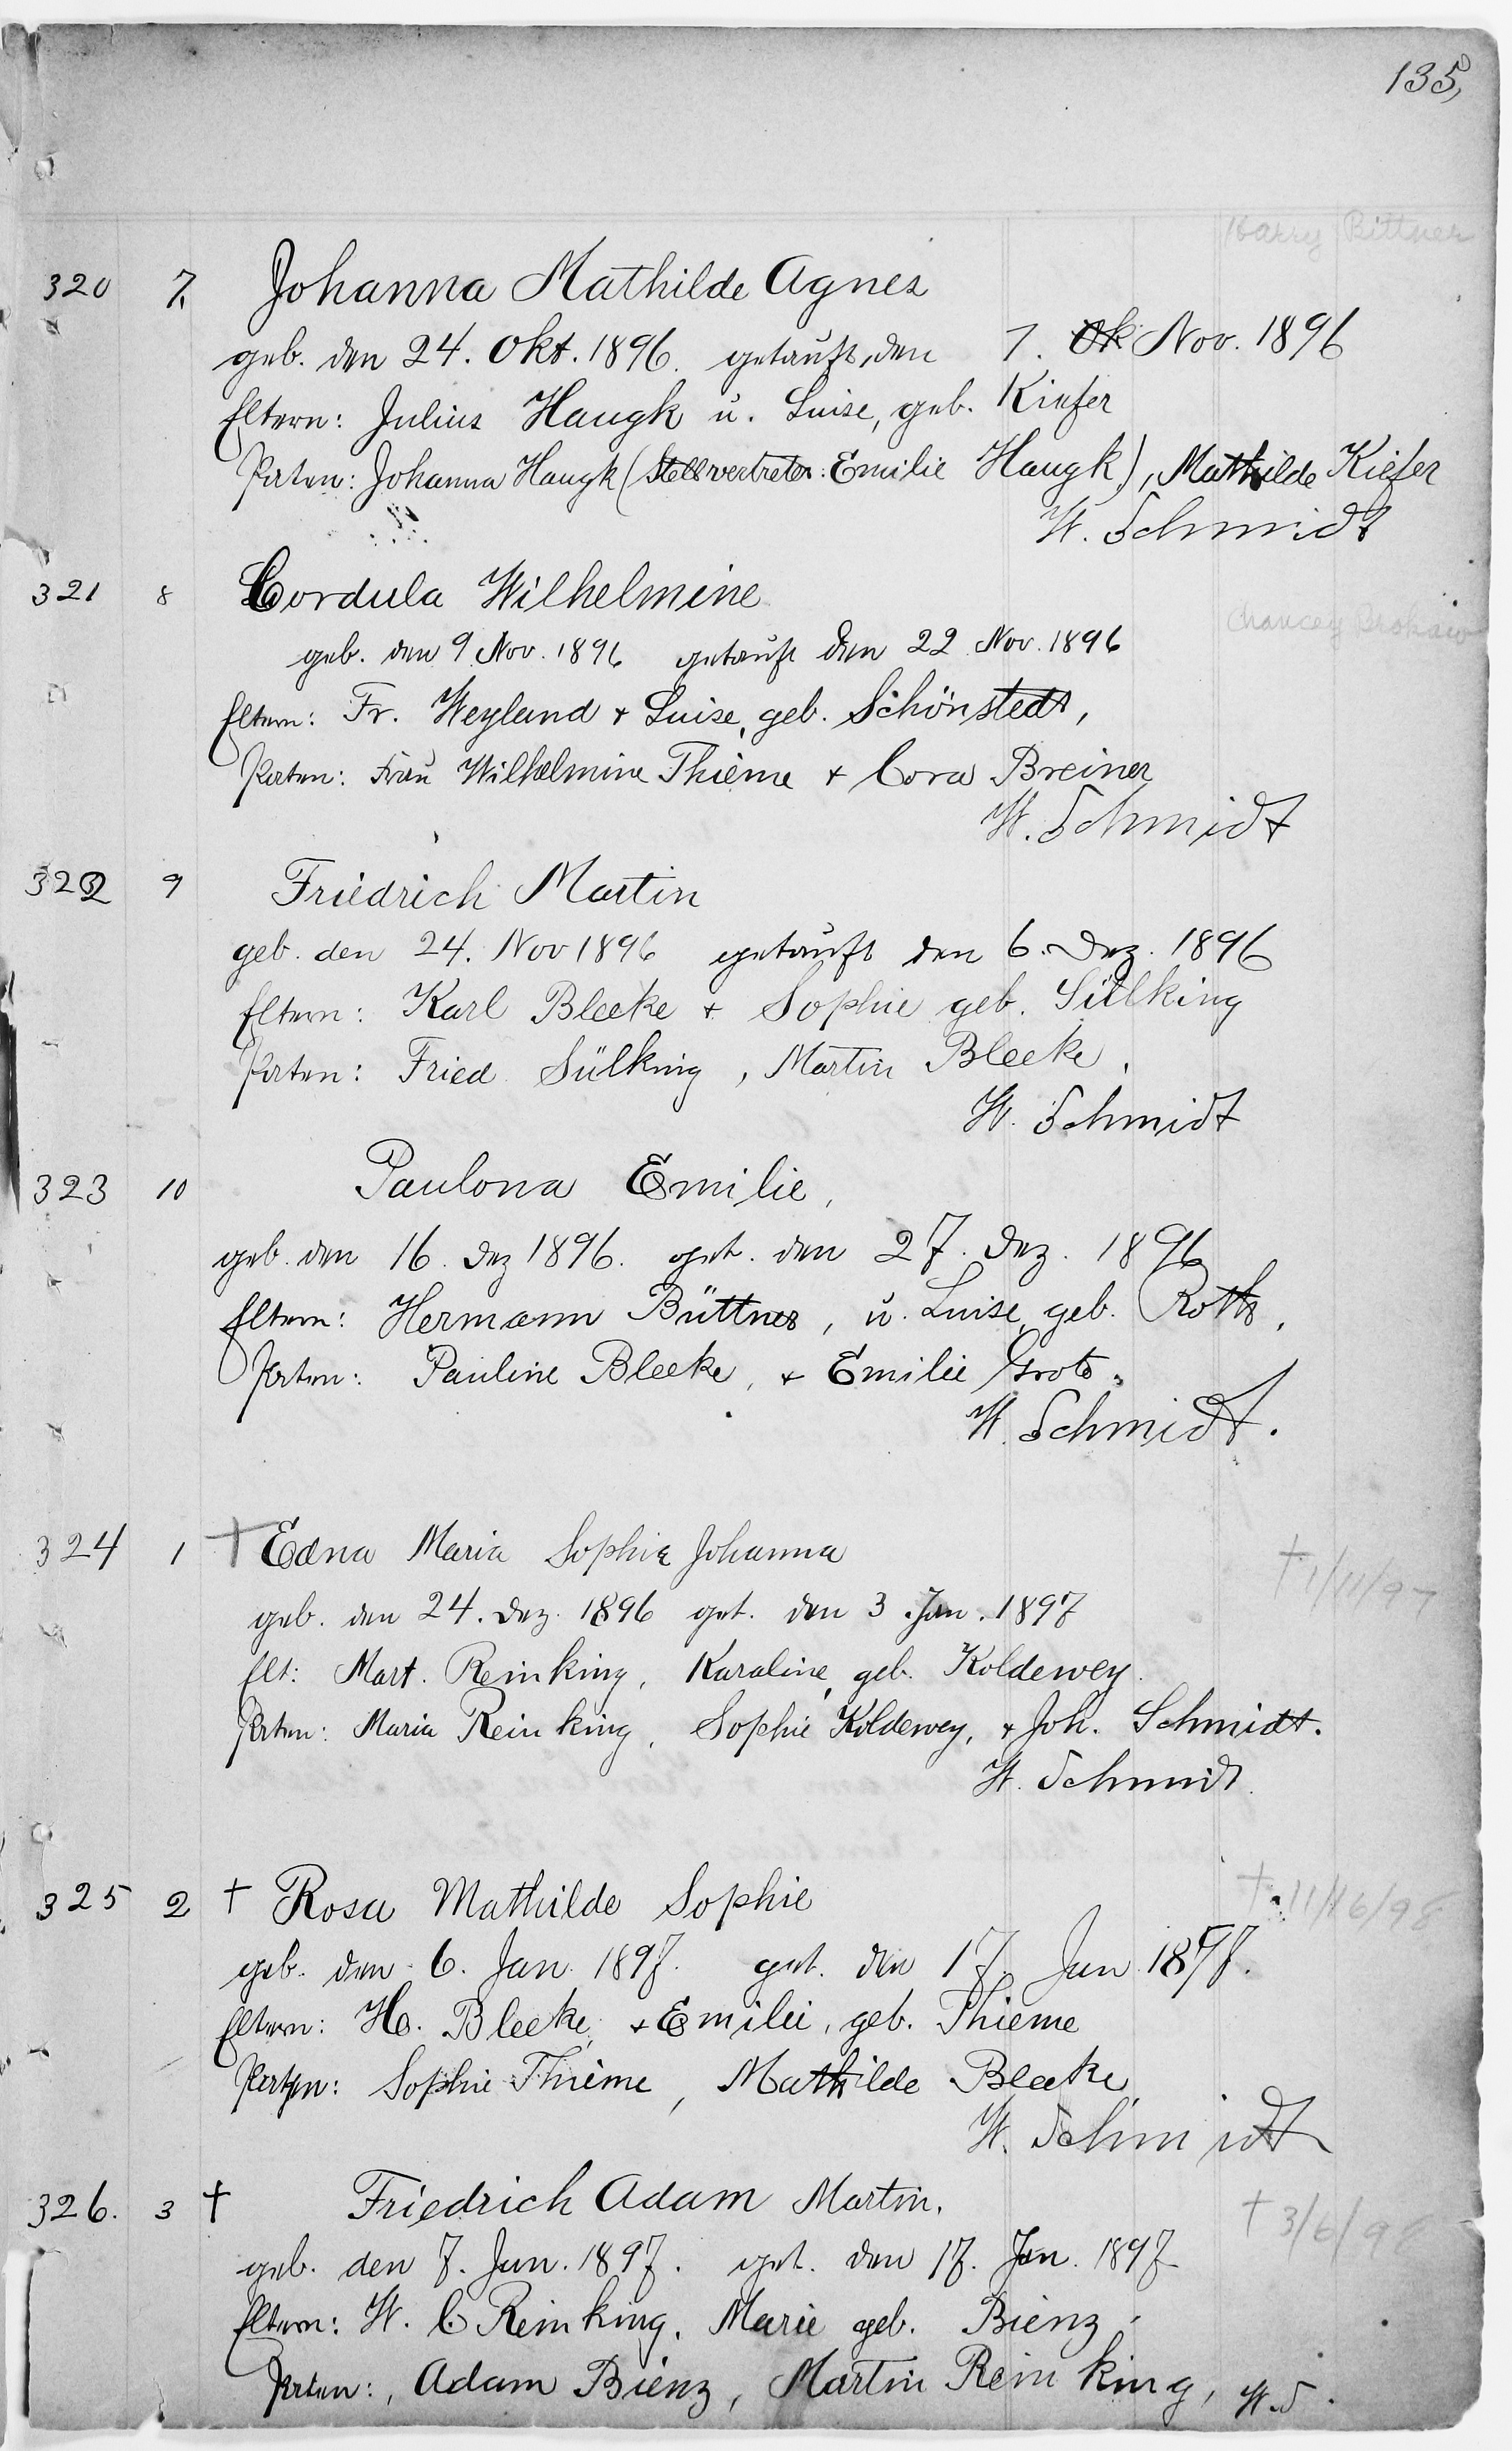 135,
Harry Bittner
320 7. Johanna Mathilde Agnes
geb. den 24. Okt. 1896. getauft, den 7. Ok Nov. 1896
Eltern: Julius Haugk u. Luise, geb. Kiefer
Paten: Johanna Haugk (Stellvertreter: Emilie Haugk), Mathilde Kiefer
W. Schmidt
321 8 Cordula Wilhelmine
Chancey
geb. den 9 Nov. 1896 getauft den 22 Nov. 1896
Eltern: Fr. Weyland + Luise, geb. Schönstedt,
Paten: Frau Wilhelmine Thieme + Cora Breiner
W. Schmidt
322 9 Friedrich Martin
geb. den 24. Nov 1896 getauft den 6. Dez. 1896
Eltern: Karl Bleeke + Sophie geb. Sülking
Paten: Fried Sülking, Martin Bleeke.
W. Schmidt
323 10 Paulona Emilie,
geb. den 16. Dez 1896. get. den 27. Dez. 1896
Eltern: Hermann Büttner, u. Luise, geb. Roth,
Paten: Pauline Bleeke, + Emilie Grote.
W. Schmidt.
324 1 † Edna Maria Sophie Johanna
† 1/11/97
geb. den 24. Dez. 1896 get. den 3 Jan. 1897
Elt: Mart. Reinking, Karaline, geb. Koldewey.
Paten: Maria Reinking, Sophie Koldewey, + Joh. Schmidt.
W. Schmidt.
325 2 † Rosa Mathilde Sophie
† 11/16/98
geb. den 6. Jan. 1897. get. den 17. Jan 1897.
Eltern: H. Bleeke, + Emilie, geb. Thieme
Paten: Sophie Thieme, Mathilde Bleeke
W. Schmidt
326. 3 † Friedrich Adam Martin.
† 3/6/98
geb. den 7. Jan. 1897. get. den 17. Jan. 1897
Eltern: W. C Reinking, Marie geb. Bienz.
Paten:, Adam Bienz, Martin Reinking, W. S.